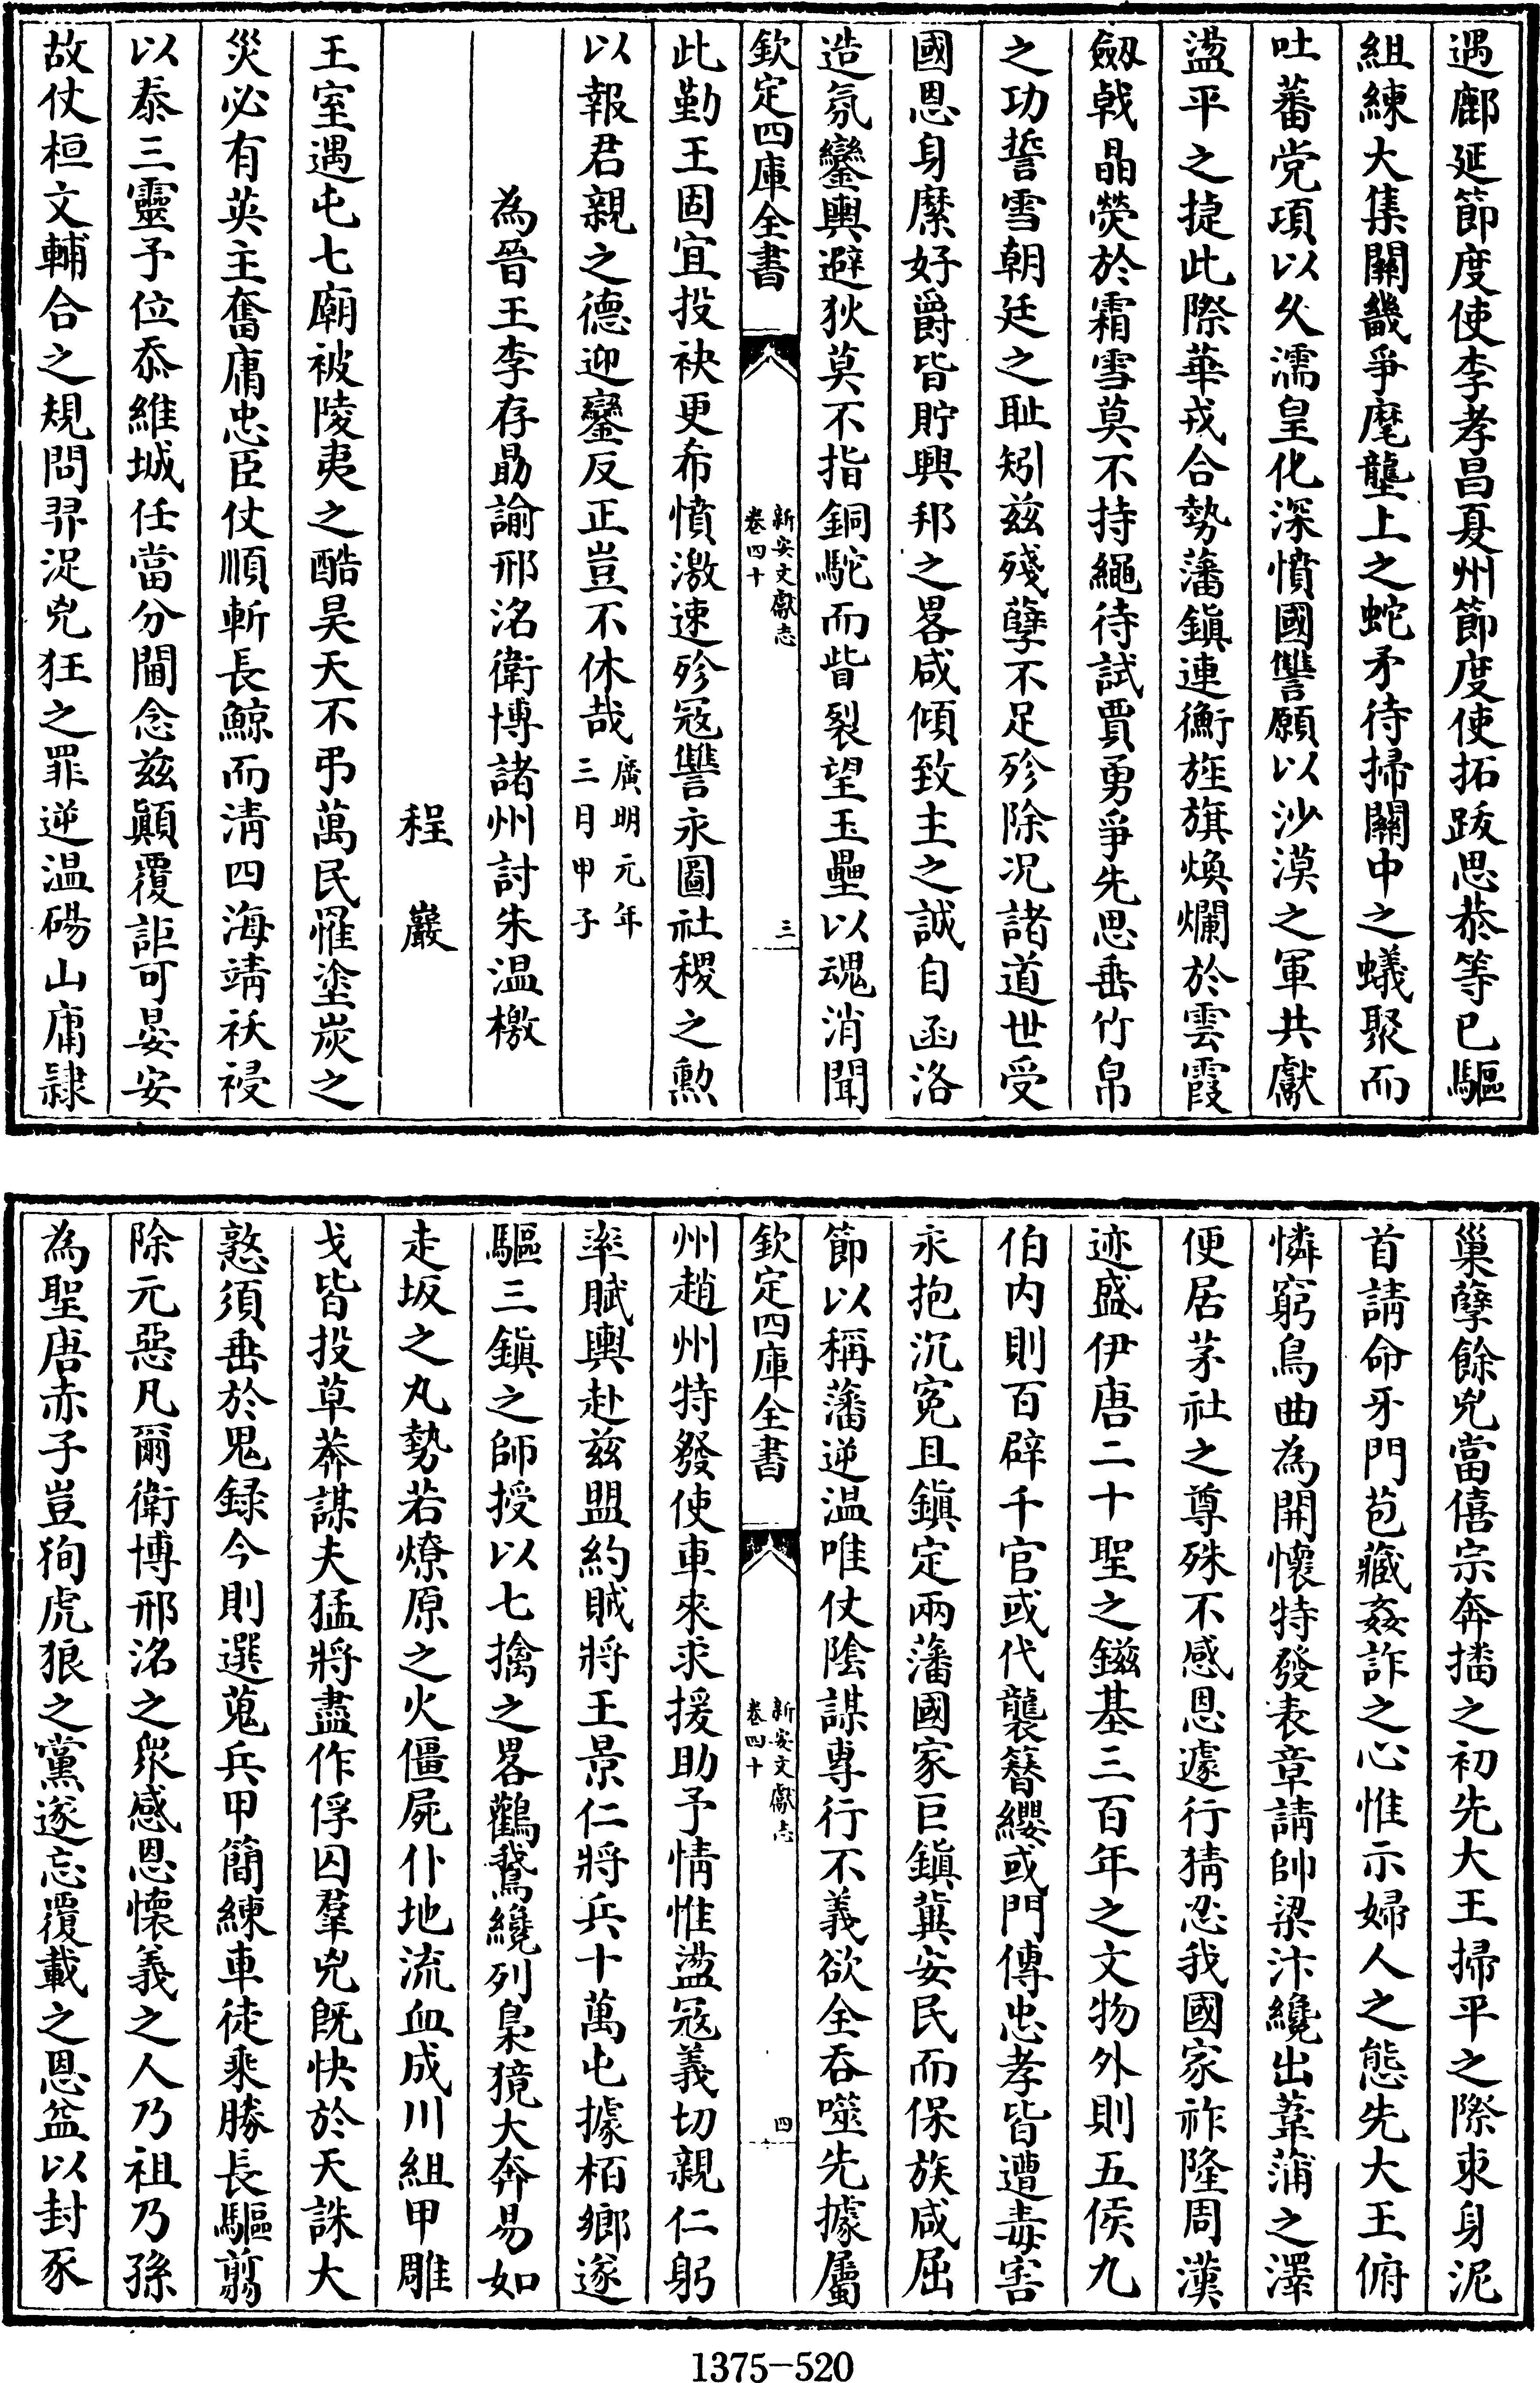 遇鄜延節度使李孝昌夏州節度使拓跋思恭等已驅
組練大集關畿爭麾壟上之蛇矛待掃關中之蟻聚而
吐蕃党項以久濡皇化深憤國讐願以沙漠之軍共獻
盪平之捷此際華戎合勢藩鎮連衡旌旗煥爛於雲霞
劔戟晶熒於霜雪莫不持繩待試賈勇爭先思垂竹帛
之功誓雪朝廷之耻矧兹殘孽不足殄除况諸道世受
國恩身縻好爵皆貯興邦之畧咸傾致主之誠自函洛
造氛鑾輿避狄莫不指銅駝而眥裂望玉壘以魂消聞
欽定四庫全書
新安文獻志
卷四十
三
此勤王固宜投袂更希憤激速殄冦讐永圖社稷之勲
以報君親之德迎鑾反正豈不休哉廣明元年三月甲子
為晉王李存勗諭邢洺衛博諸州討朱温檄
程巖
王室遇屯七廟被陵夷之酷昊天不弔萬民罹塗炭之
災必有英主奮庸忠臣仗順斬長鯨而清四海靖祅祲
以泰三靈予位忝維城任當分閫念兹顛覆詎可晏安
故仗桓文輔合之規問羿浞兇狂之罪逆温碭山庸隷
巢孽餘兇當僖宗奔播之初先大王掃平之際束身泥
首請命牙門苞藏姦詐之心惟示婦人之態先大王俯
憐窮鳥曲為開懷特發表章請帥梁汴纔出萑蒲之澤
便居茅社之尊殊不感恩遽行猜忍我國家祚隆周漢
迹盛伊唐二十聖之鎡基三百年之文物外則五侯九
伯内則百辟千官或代襲簪纓或門傳忠孝皆遭毒害
永抱沉寃且鎮定兩藩國家巨鎮冀安民而保族咸屈
節以稱藩逆温唯仗陰謀專行不義欲全吞噬先據屬
欽定四庫全書
新安文獻志
卷四十
四
州趙州特發使車來求援助予情惟盪冦義切親仁躬
率賦輿赴兹盟約賊將王景仁將兵十萬屯據栢鄉遂
驅三鎮之師授以七擒之畧鸛鵞纔列梟獍大奔易如
走坂之丸勢若燎原之火僵屍仆地流血成川組甲雕
戈皆投草莽謀夫猛將盡作俘囚羣兇既快於天誅大
憝須垂於鬼録今則選蒐兵甲簡練車徒乘勝長驅翦
除元惡凡爾衛博邢洺之衆感恩懷義之人乃祖乃孫
為聖唐赤子豈狥虎狼之黨遂忘覆載之恩盆以封豕
1375-520